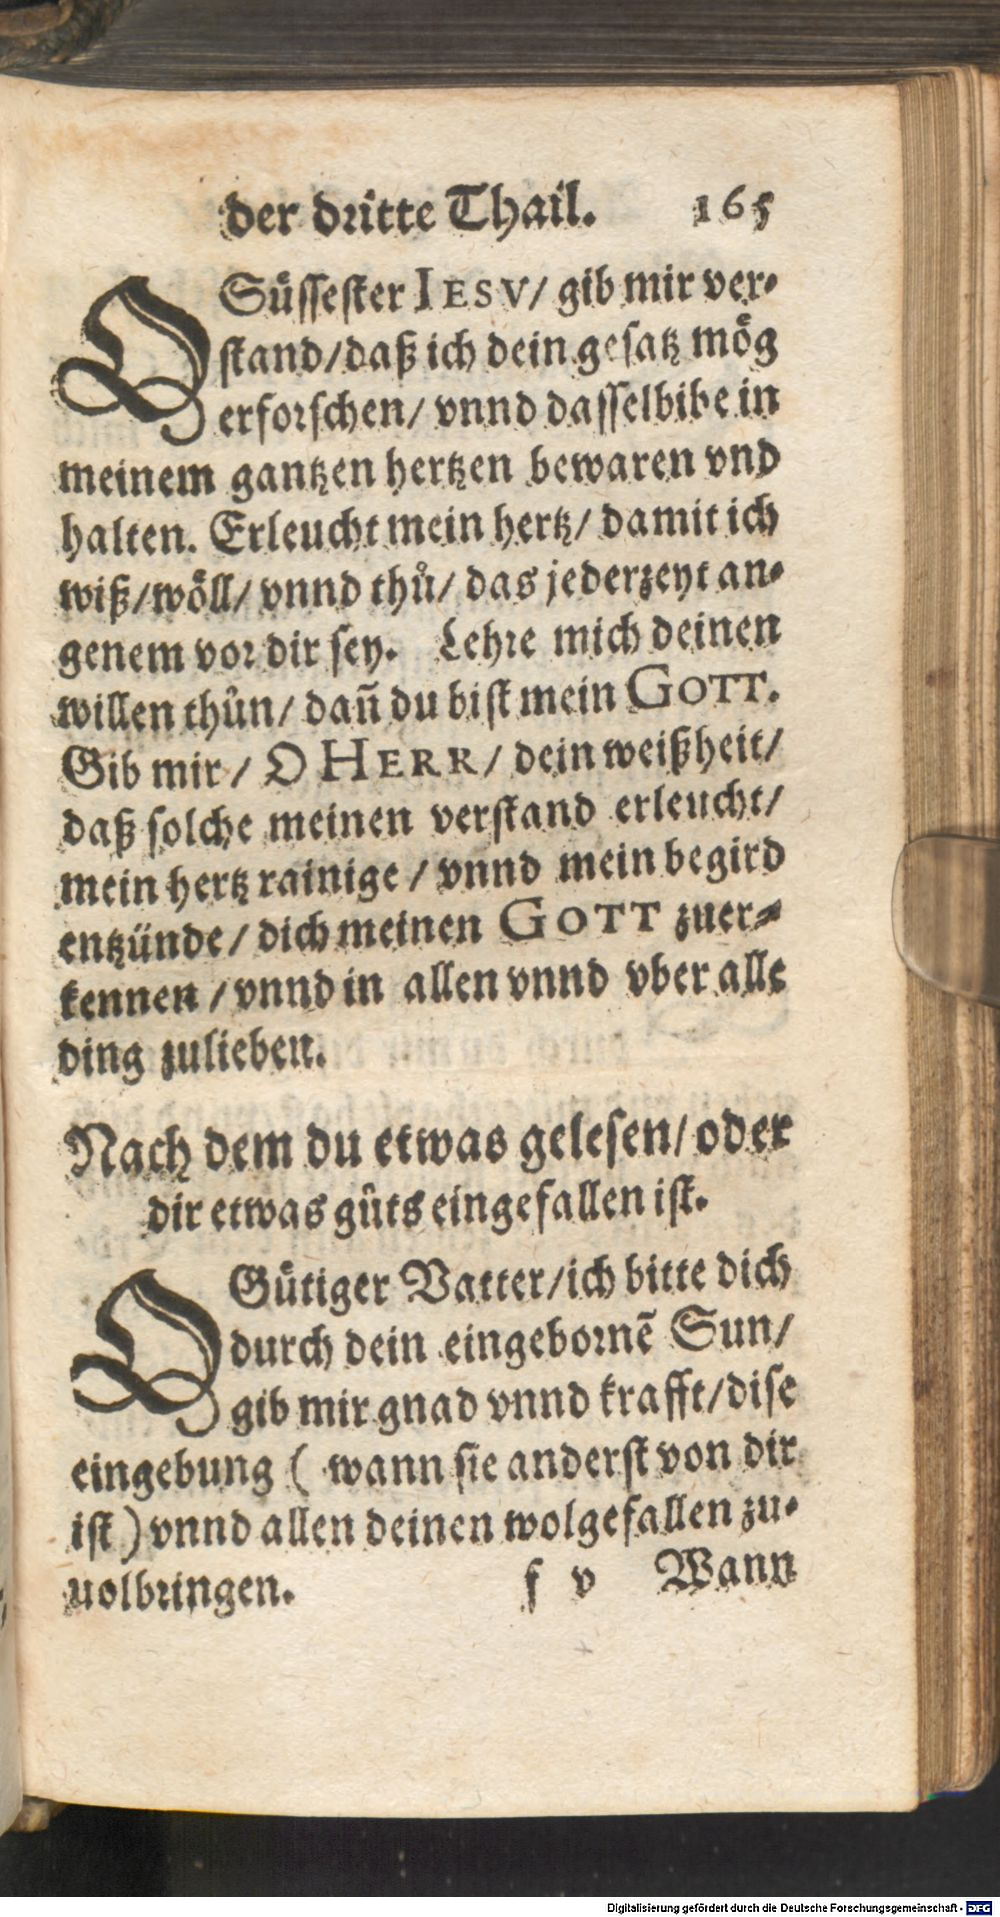 der dritte Thail. 165
O Süssester IESV/ gib mir ver-
stand/daß ich dein gesatz mög
erforschen/ vnnd dasselbibe in
meinem gantzen hertzen bewaren vnd
halten. Erleucht mein hertz/ damit ich
wiß/wöll/ vnnd thů/ das jederzeyt an-
genem vor dir sey. Lehre mich deinen
willen thůn/ dañ du bist mein GOTT.
Gib mir/ O HERR/ dein weißheit/
daß solche meinen verstand erleucht/
mein hertz rainige / vnnd mein begird
entzünde/ dich meinen GOTT zuer-
kennen / vnnd in allen vnnd vber alle
ding zulieben.
Nach dem du etwas gelesen/ oder
dir etwas gůts eingefallen ist.
O Gütiger Vatter/ich bitte dich
durch dein eingebornẽ Sun/
gib mir gnad vnnd krafft/dise
eingebung ( wann sie anderst von dir
ist ) vnnd allen deinen wolgefallen zu-
uolbringen. f v Wann
Digitalisierung gefördert durch die Deutsche Forschungsgemeinschaft - DFG